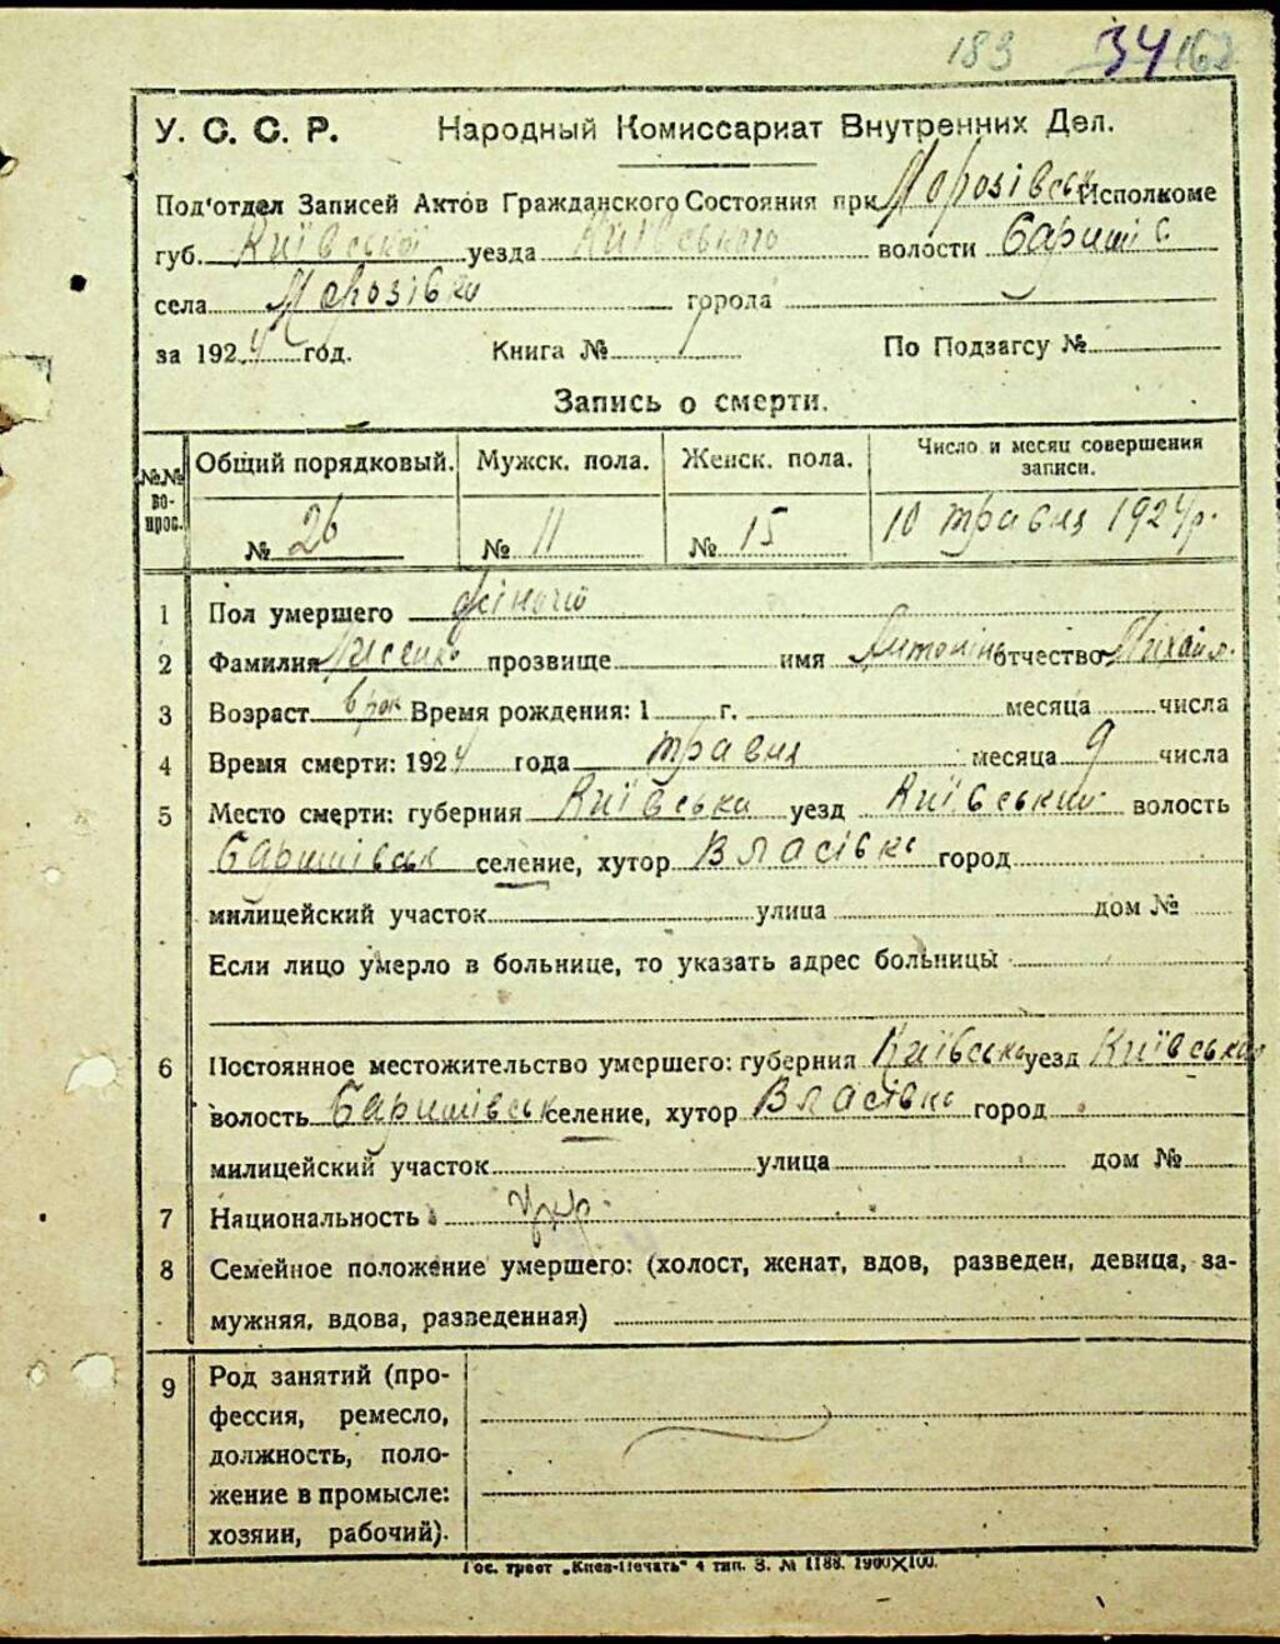 183 34 162
У. С. С. Р. Народный Комиссариат Внутренних Дел.
Под'отдел Записей Актов Гражданского Состояния при Морозівськ Исполкоме
губ. Київської уезда Київського волости Баришів
села Морозівки города
за 1924 год. Книга № По Подзагсу №
Запись о смерти.
№№ вопрос. Общий порядковый. Мужск. пола. Женск. пола. Число и месяц совершения записи.
№ 26 № 11 № 15 10 травня 1924р.
1 Пол умершего жіночо
2 Фамилия прозвище имя Антонін отчество Міхайл.
3 Возраст рок Время рождения: 1 г. месяца числа
4 Время смерти: 1924 года травня месяца 9 числа
5 Место смерти: губерния Київська уезд Київський волость
Баришівськ селение, хутор Власівка город
милицейский участок улица дом №
Если лицо умерло в больнице, то указать адрес больницы
6 Постоянное местожительство умершего: губерния Київська уезд Київська
волость Баришівськ селение, хутор Власівка город
милицейский участок улица дом №
7 Национальность укр.
8 Семейное положение умершего: (холост, женат, вдов, разведен, девица, за-
мужняя, вдова, разведенная)
9 Род занятий (про-
фессия, ремесло,
должность, поло-
жение в промысле:
хозяин, рабочий).
Гос. трест „Киев-Печать“ 4 тип. З. № 1188. 1900X100.